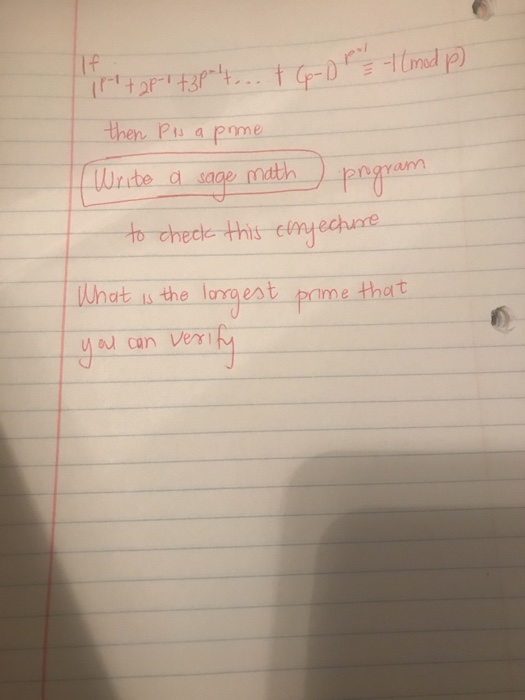 If
1^{p-1} + 2^{p-1} + 3^{p-1} + ... + (p-1)^{p-1} ≡ -1 (mod p)
then P is a prime
Write a sage math program
to check this conjecture
What is the largest prime that
you can verify